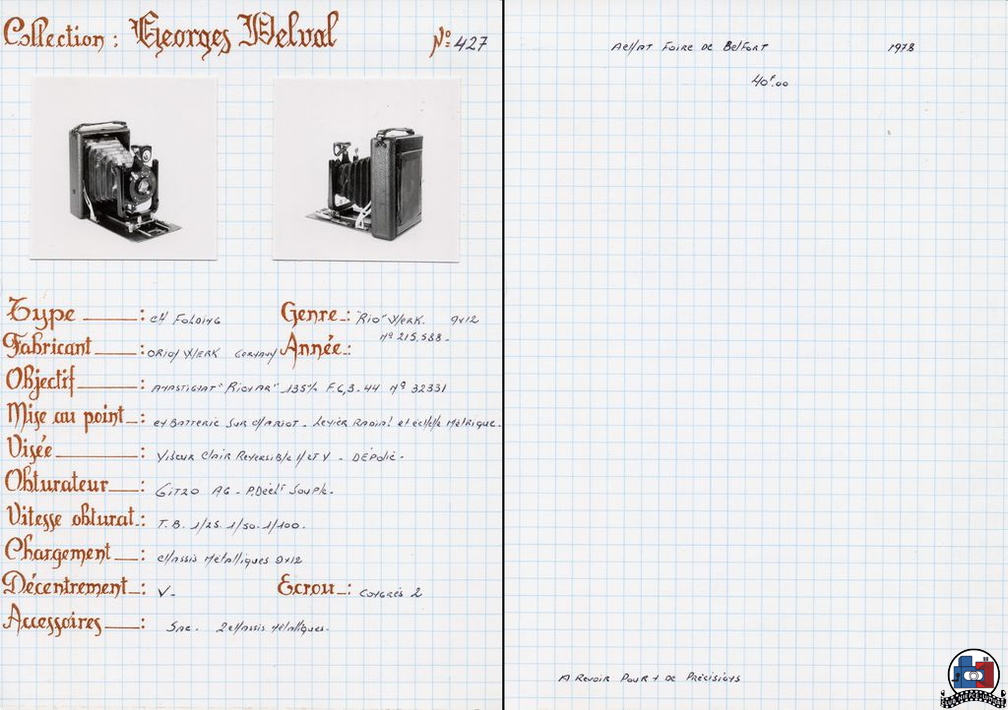 Collection : Georges Delval Nº 427
Type : CH Folding Genre : "Rio" Werk. 9x12
nº 215.588.
Fabricant : Orion Werk Germany Année :
Objectif : Anastigmat "Rionar" 135% F.6,3.44 nº 32331
Mise au point : en Batterie sur chariot - Levier Radial et échelle Métrique.
Visée : Viseur Clair Reversible H et V - Dépoli.
Obturateur : Gitzo AG - P.Déclt Souple.
Vitesse obturat. : T. B. 1/25. 1/50. 1/100.
Chargement : châssis Métalliques 9x12
Décentrement : V. Ecrou : Congrès 2
Accessoires : Sac. 2 châssis Métalliques.
Achat Foire de Belfort 1978
40F.00
A Revoir Pour + de Précisions